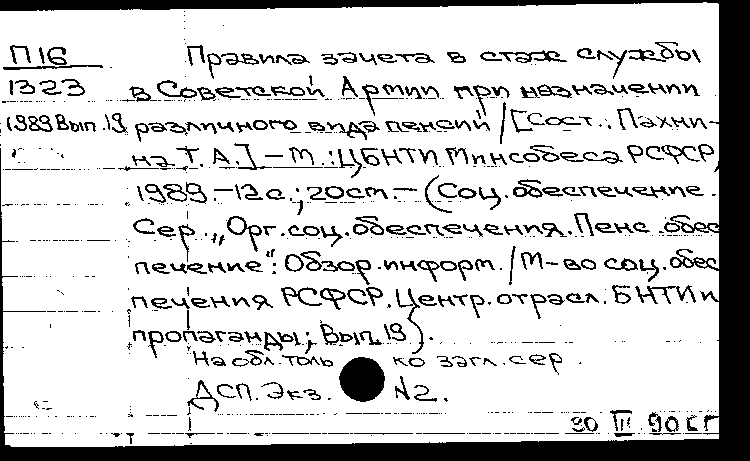 П16 Правила зачета в стаж службы
1323 в Советской Армии при назначении
1989 Вып.19 различного вида пенсий / [Сост.: Пахни-
на Т.А.] – М.: ЦБНТИ Минсобеса РСФСР,
1989. – 12 с.; 20 ст. – (Соц. обеспечение.
Сер. „Орг. соц. обеспечения. Пенс. обес
печение": Обзор. информ. / М-во соц. обес
печения РСФСР, Центр. отрасл. БНТИ и
пропаганды; Вып. 19).
На обл. толь ко загл. сер.
ДСП. Экз. N2.
30 III 90 СГ